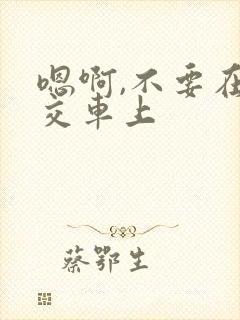 嗯啊,不要在
交車上
蔡鄂生